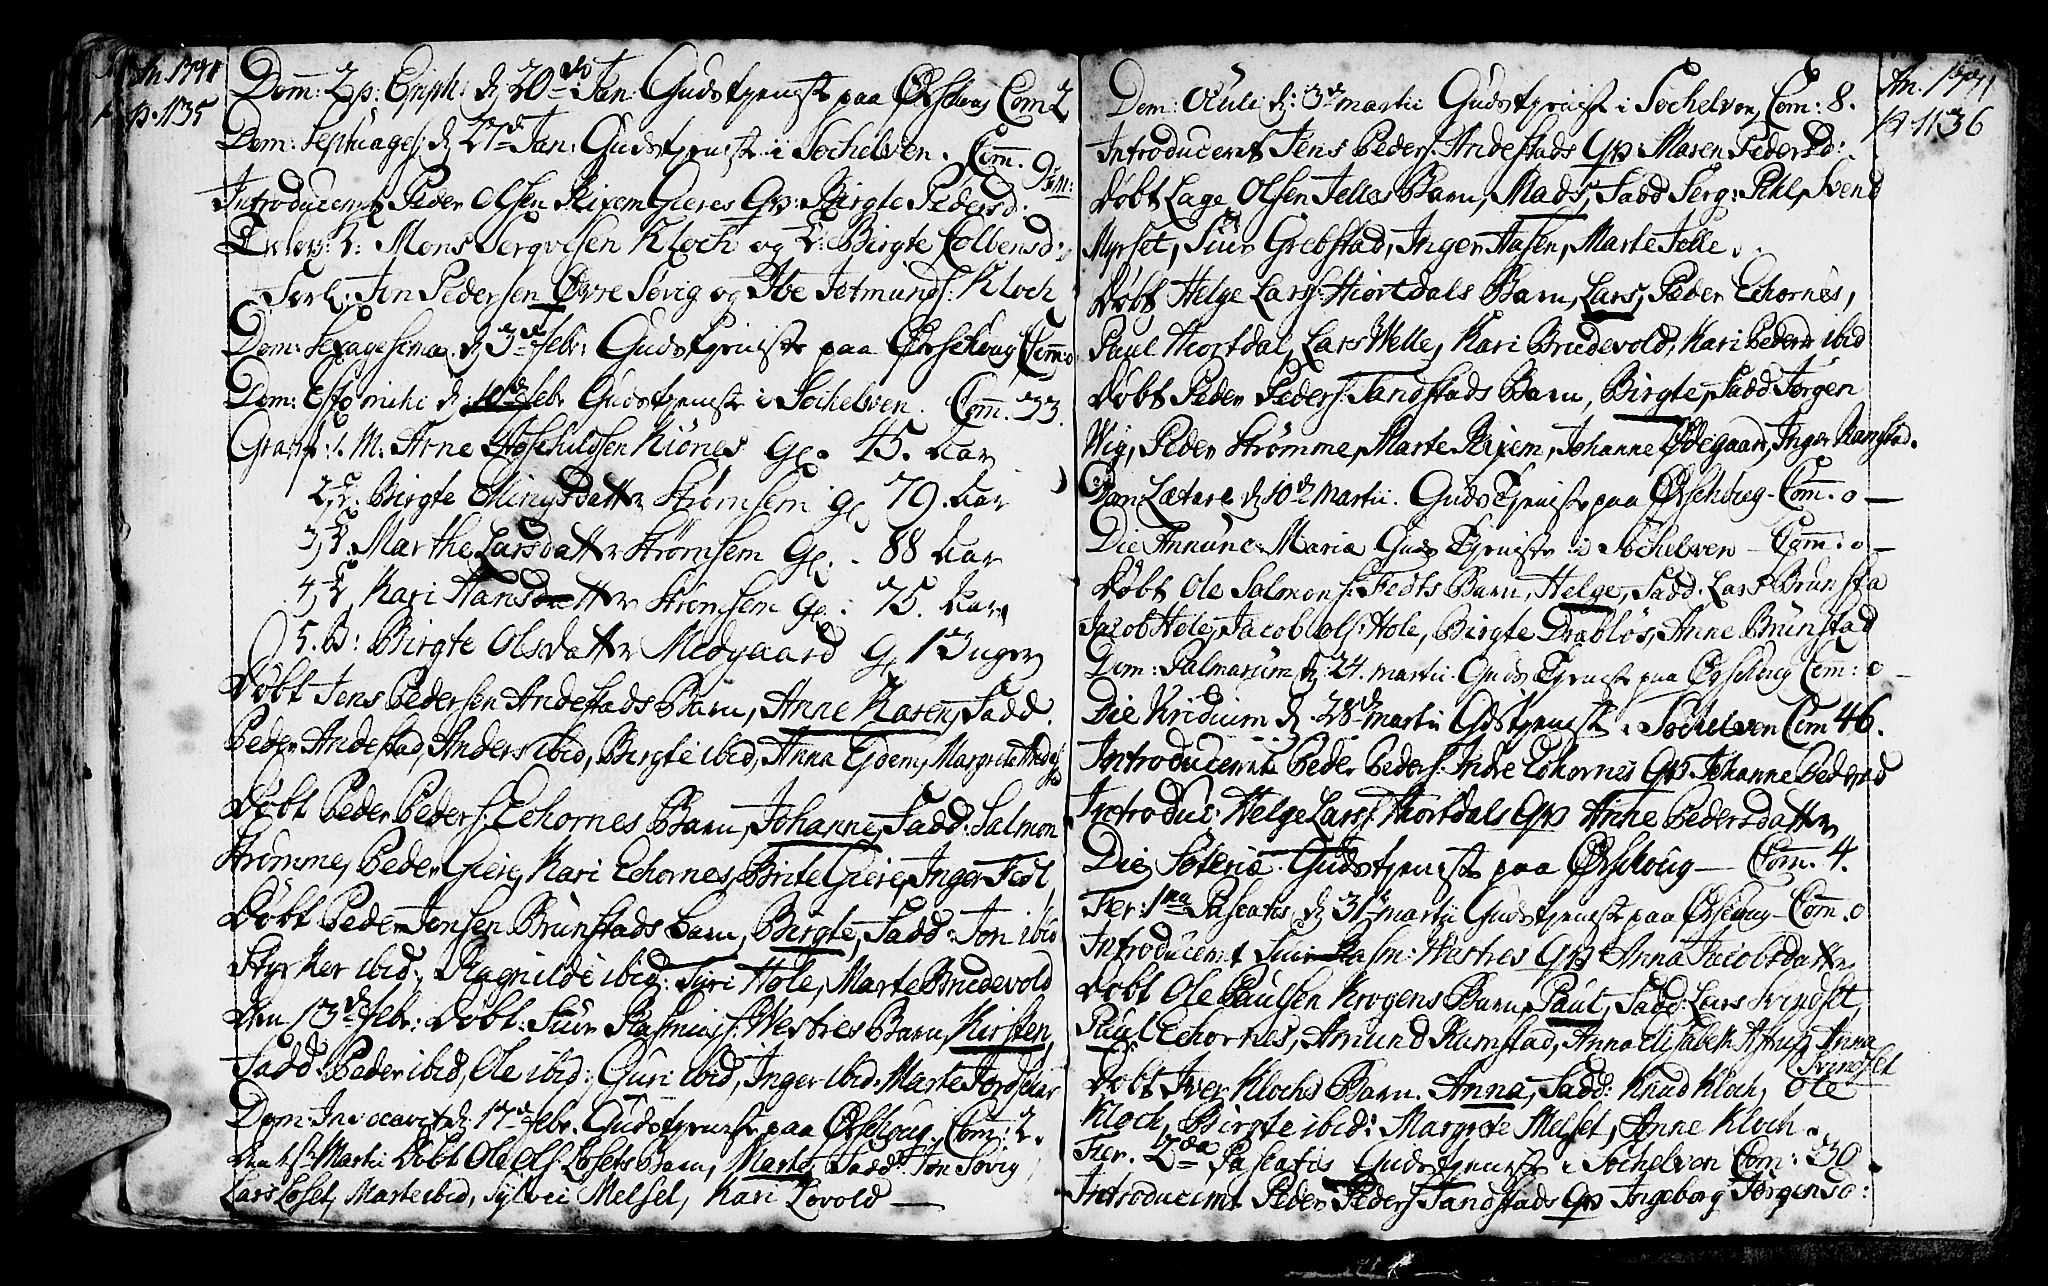 An. 1771
p. 1135
Dom: 2 p: Epiph: d 20de Jan: Gudstjeniste paa Ørschoug Com 2
Dom: Septuages: d 27de Jan: Gudstjeniste i Søchelven. Com. 9
Introducerit Peder Olsen Rixem Gieres Qv: Birgte Pedersd.
Trolov: K: Mons Sergvesen Kloch og P: Birgte Colbensd:
Forl: Jon Pedersen Øvre Søvig og Ibe Jetmunds: Kloch
Dom: Sexagesima d 3de Febr: Gudstjeniste paa Ørschoug Com: 0
Dom: Esto mihi d 10de Febr Gudstjeniste i Søchelven. Com. 33.
Graff: 1. M: Arne Kiønes Gl. 45. Aar
2, K: Birgte Ellingsdatter Strømsem gl 79. Aar
3, K. Marthe Larsdatter Strømsem Gl. - 88 Aar
4, K Kari Hansdatter Strømsem gl: 75. Aar
5. B: Birgte Olsdatter Medgaard G 13 uger
Døbt Jens Pedersen Andestads Barn, Anne Karen, Fadd.
Peder Andestad, Anders ibid, Birgte ibid, Anna Ejdem, Margrete
Døbt Peder Peders: Echornes Barn, Johanne, Fadd: Salmon
Strømme, Peder Giere, Kari Echornes, Brite Giere, Inger Fedt,
Døbt Peder Jensen Brunstads Barn, Birgte, Fadd: Jon ibid
Styrker ibid:, Ragnilde ibid: Siri Hole, Marte Brudevold
Den 13de Febr: Døbt: Siur Rasmuss: Westres Barn, Kirsten,
Fadd: Peder ibid, Ole ibid:, Guri ibid, Inger ibid: Marte
Dom: Invocavit d 17de Febr. Gudstjeniste paa Ørschoug. Com: 2.
Den 1ste Martii Døbt Ole Ols: Løsets Barn, Marte, Fadd: Jon Søvig
Lars Løset, Marte ibid, Sylvei Melset, Kari Lovold
An. 1771
p. 1136
Dom: Oculi d: 3de martii Gudstjeniste i Søchelven, Com: 8.
Introducerit Jens Peders: Andestads Qv: Maren Pedersd:
Døbt Lage Olsen Jelles Barn, Mads, Fadd Serg: Pihl, Svend
Myrset, Siur Grebstad, Inger Aasen, Marte Jelle.
Døbt Helge Lars: Hiortdals Barn, Lars, Peder Echornes,
Paul Hiortdal, Lars Welle, Kari Brudevold, Kari Peders ibid
Døbt Peder Peders: Tandstads Barn, Birgte, Fadd: Jørgen
Wig, Peder Strømme, Marte Rixem, Johanne Ødegaard, Inger Ramstad.
Dom Lætare d 10de Martii. Guds Tjeniste paa Ørschoug - Com. 0 -
Die Annunc: Mariæ Guds Tjeniste i Søchelven - Com: 0 -
Døbt Ole Salmons: Fedts Barn, Helge, Fadd. Lars Brunsta
Jacob Hole, Jacob Ols: Hole, Birgte Drabløs, Anne Brunstad
Dom: Palmarum d 24. martii Guds Tjeniste paa Ørschoug Com: 0 -
Die Viridium d 28de martii Gudstjeniste i Søchelven Com 46.
Introducerit Peder Peders: Andre Echornes Qv Johanne
Introduc: Helge Lars: Hiortdals Qv Anne Pedersdatter
Die Soteriæ. Gudstjeniste paa Ørschoug - Com. 4.
Fer: 1ma Pascatis d 31te martii Gudstjeniste paa Ørschoug - Com. 0
Introducerit Siur Rasm: Westres Qv Anna Jacobsdatter
Døbt Ole Paulsen Krogens Barn, Paul, Fadd: Lars Svindset,
Paul Echornes, Amund Ramstad, Anna Elisabeth Astrup, Anna
Svindset
Døbt Iver Klochs Barn. Anna, Fadd: Knud Kloch, Ole
Kloch, Birgte ibid: Margrete Melset, Anne Kloch.
Fer. 2da Pascatis Gudstjeniste i Søchelven Com: 30
Introducerit Peder Peders: Tandstads Qv Ingeborg Jørgensd: